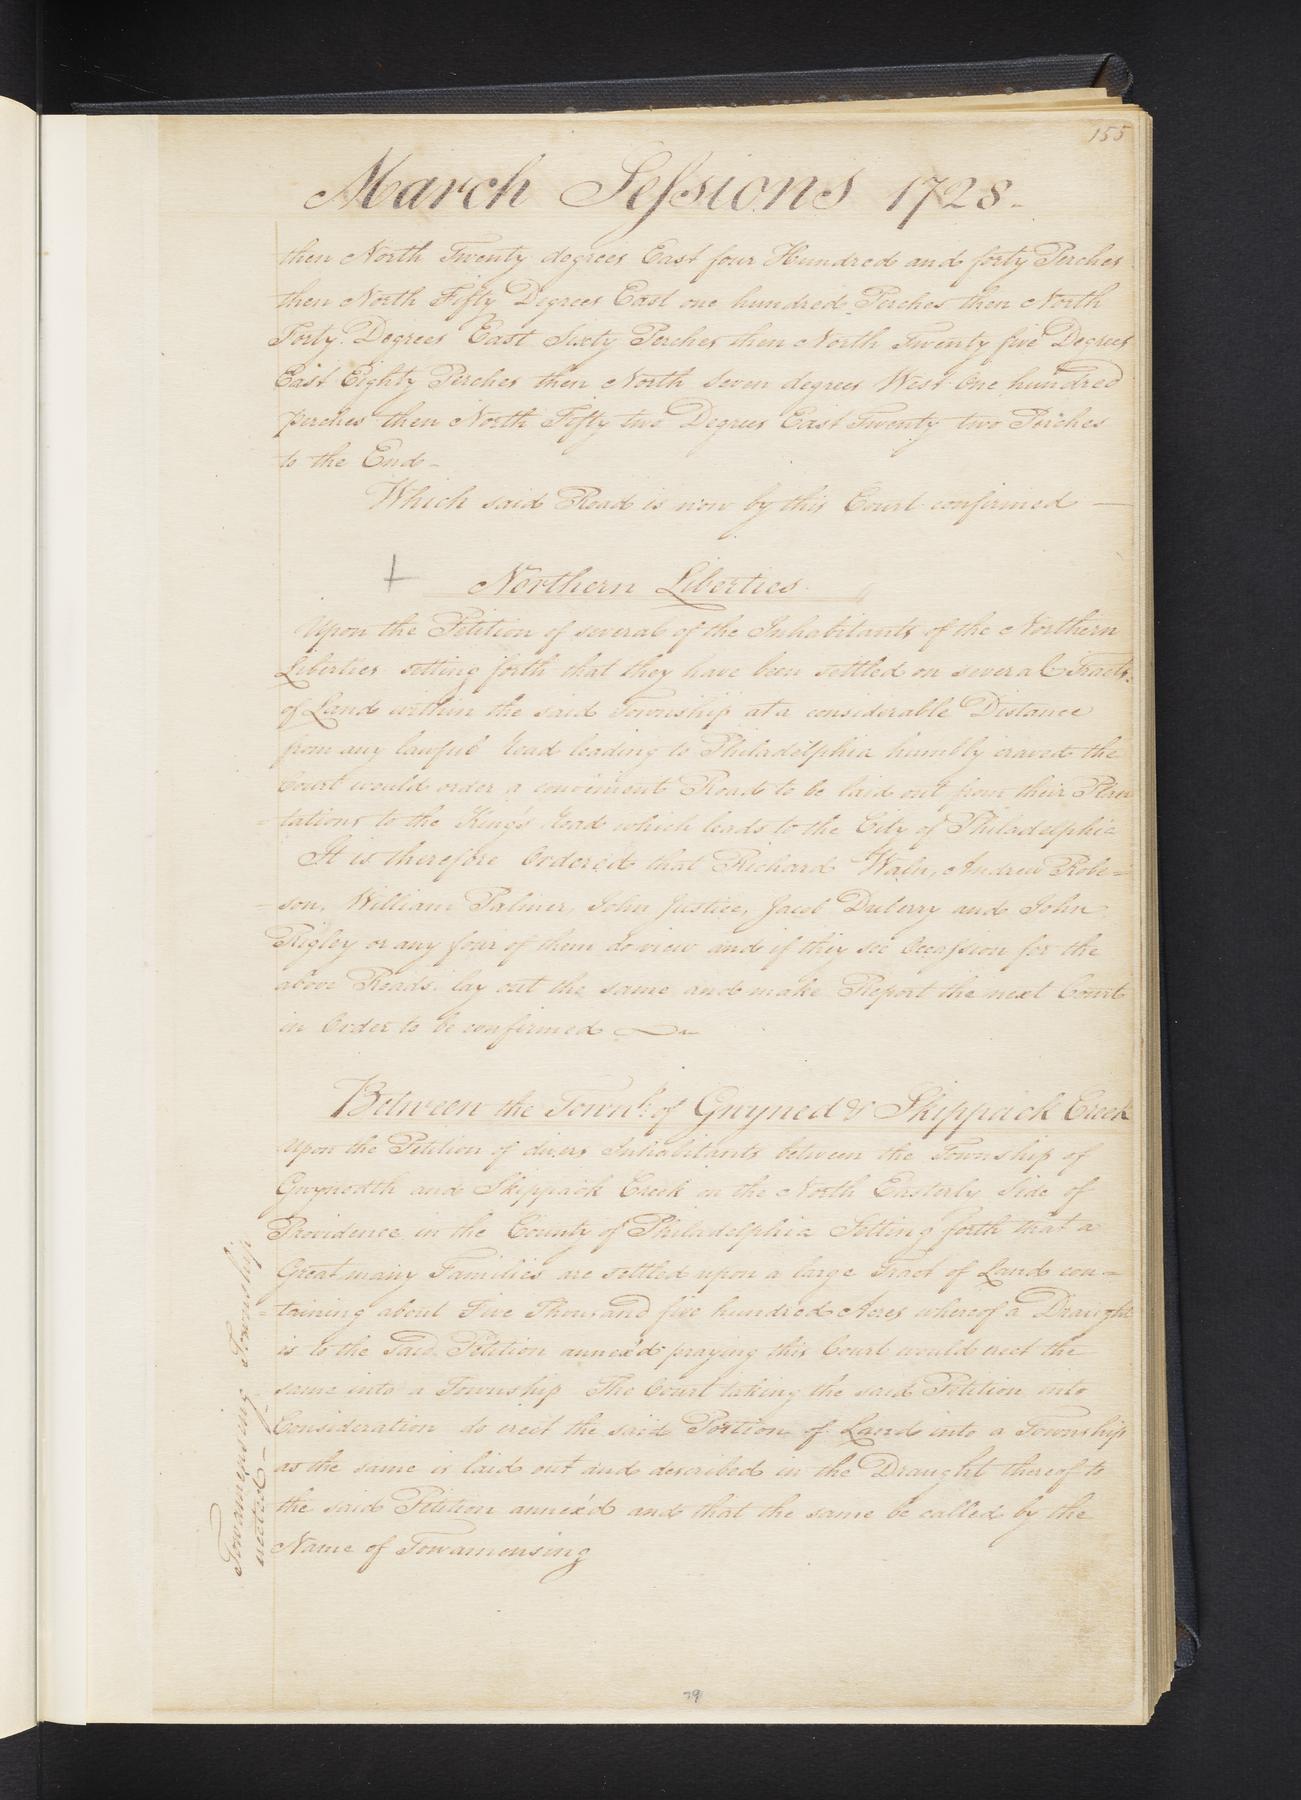 155
March Sessions 1728-
then North Twenty degrees East four Hundred and forty Perches
then North Fifty Degrees East one hundred Perches then North
Forty Degrees East Sixty Perches then North Twenty five Degrees
East Eighty Perches then North Seven degrees West One hundred
perches then North Fifty two Degrees East Twenty two Perches
to the End-
Which said Road is now by this Court confirmed —
Northern Liberties
Upon the Petition of several of the Inhabitants of the Northern
Liberties setting forth that they have been settled on several Tracts
of Land within the said Township at a considerable Distance
from any lawful road leading to Philadelphia humbly craved the
Court would order a convenient Road to be laid out from their Plan
=tations to the King's Road which leads to the City of Philadelphia
It is therefore Ordered that Richard Waln, Andrew Robe=
=son, William Palmer, John Justice, Jacob Duberry and John
Rigley or any four of them do view and if they see Occassion for the
above Roads lay out the same and make Report the next Court
in Order to be confirmed
Between the Townsp. of Gwyned & Skippack Creek
Upon the Petition of divers Inhabitants between the Township of
Gwynedth and Skippack Creek on the North Easterly Side of
Providence in the County of Philadelphia Setting forth that a
Great many Families are settled upon a large Tract of Land con=
=taining about Five Thousand five hundred Acres whereof a Draught
is to the Said Petition annex'd praying this Court would erect the
same into a Township The Court taking the said Petition into
Consideration do erect the said Portion of Land into a Township
as the same is laid out and described in the Draught thereof to
the said Petition annex'd and that the same be called by the
Name of Towamensing
Towamensing Township
erected-
79